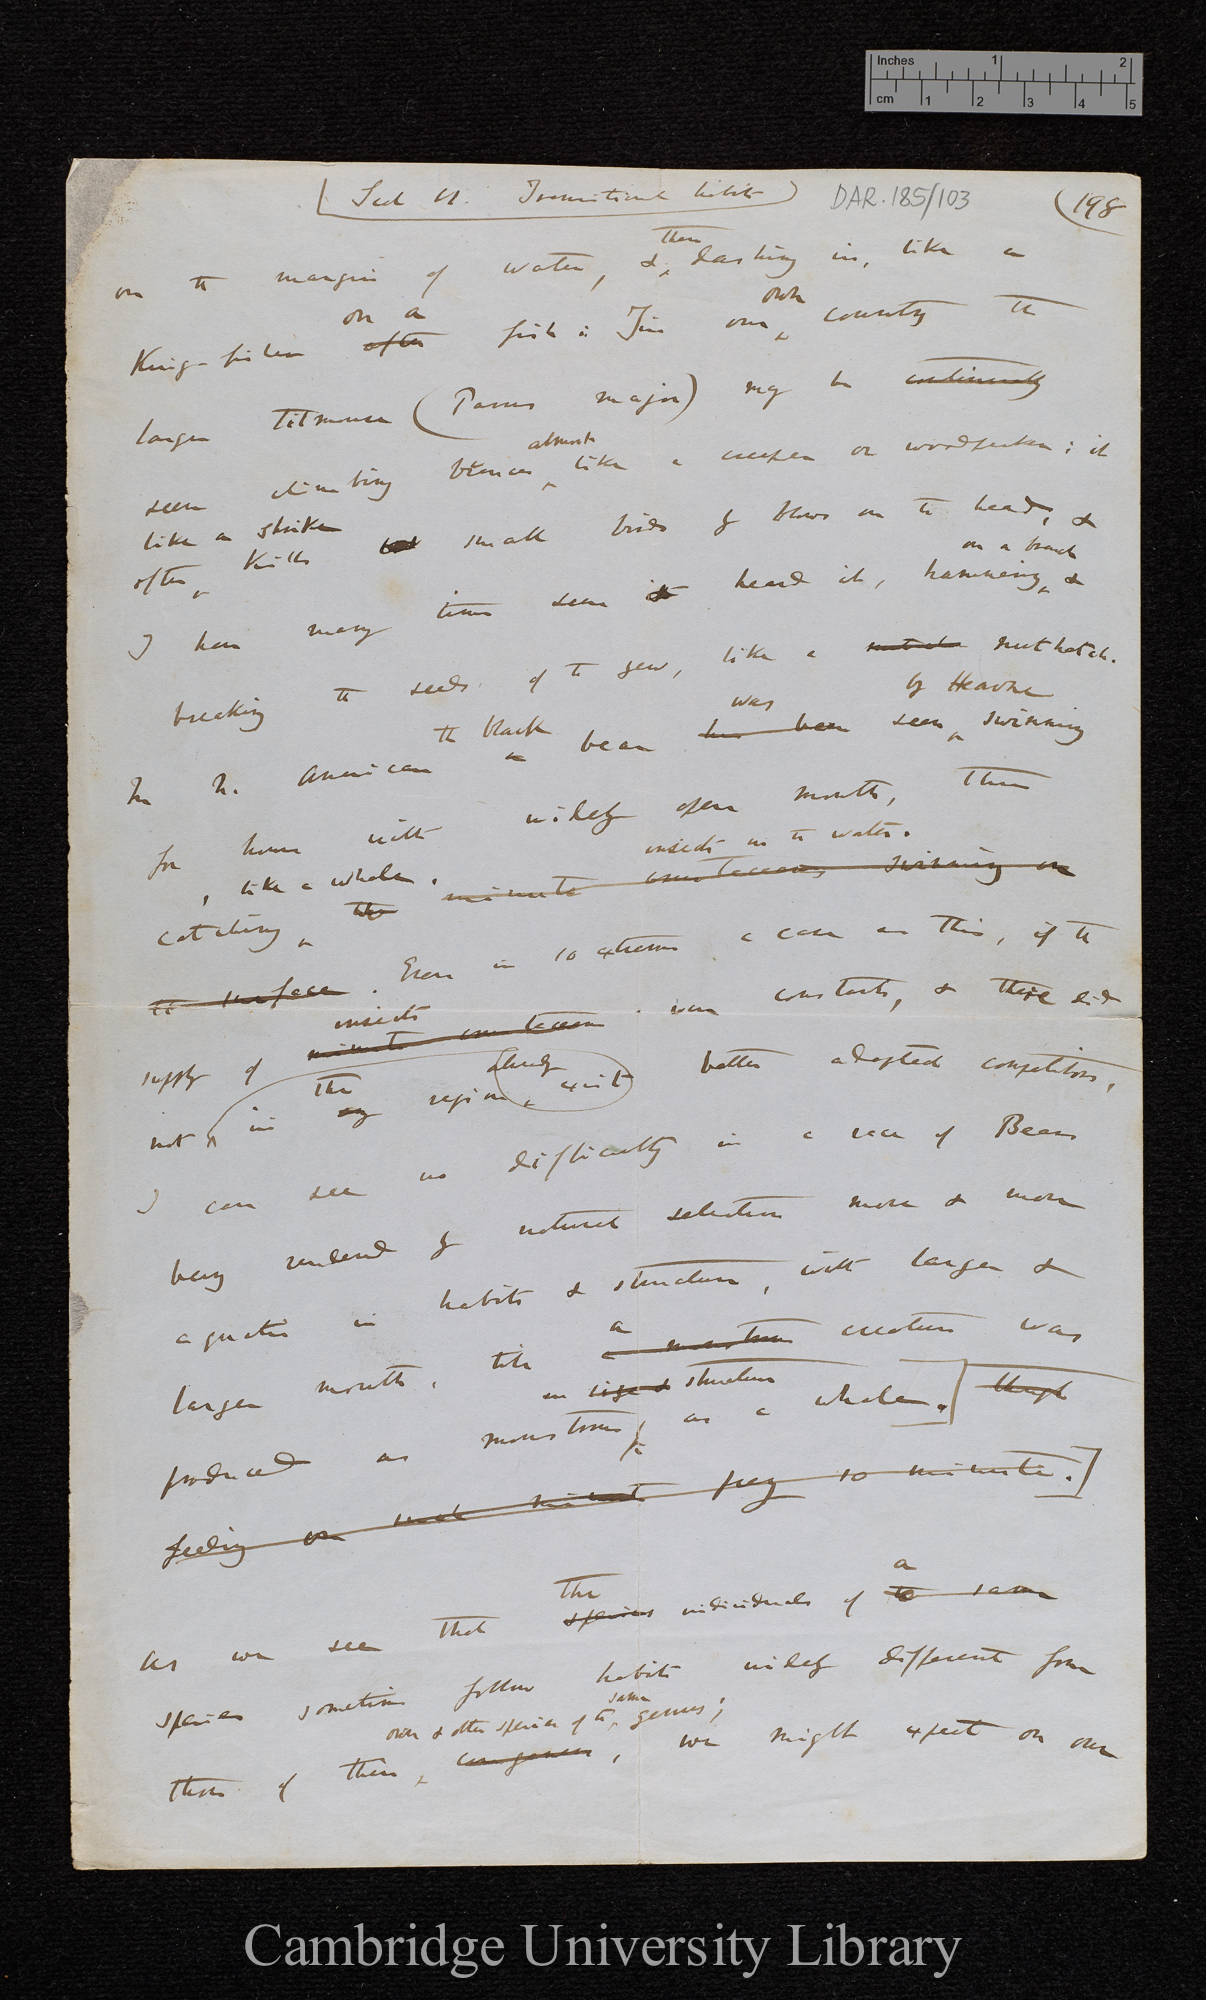 Inches 1 2
cm 1 2 3 4 5
(Sect VI. Transitional habits) DAR.185/103 (198
then
on the margin of water, & dashing in, like a
on a own
King-fisher after fish: In our country the
larger titmouse (Parus major) may be continually
almost
seen climbing branches, like a creeper or woodpecker; it
like a shrike
often kills small birds by blows on the head, &
on a branch
I have many times seen & heard it, hammering, &
breaking the seeds of the yew, like a nuthatch.
the black was by Hearne
In N. American bear has been seen swimming
for hours with widely open mouth, thus
, like a whale, insects in the water.
catching the minute crustaceans swimming on
the surface. Even in so extreme a case as this, if the
insects
supply of minute crustaceans were constant, & there did
the already
not in any region, exist better adapted competitors,
I can see no difficulty in a race of Bears
being rendered by natural selection more & more
aquatic in habits & structure, with larger &
a
larger mouths, till a monstrous creature was
in size & structure
produced as monstrous, as a whale.[though
feeding on such minute prey so minute.]
the a
As we see that species individuals of the same
species sometimes follow habits widely different from
own & other species of the same genus;
those of their congeners, we might expect on our
Cambridge University Library